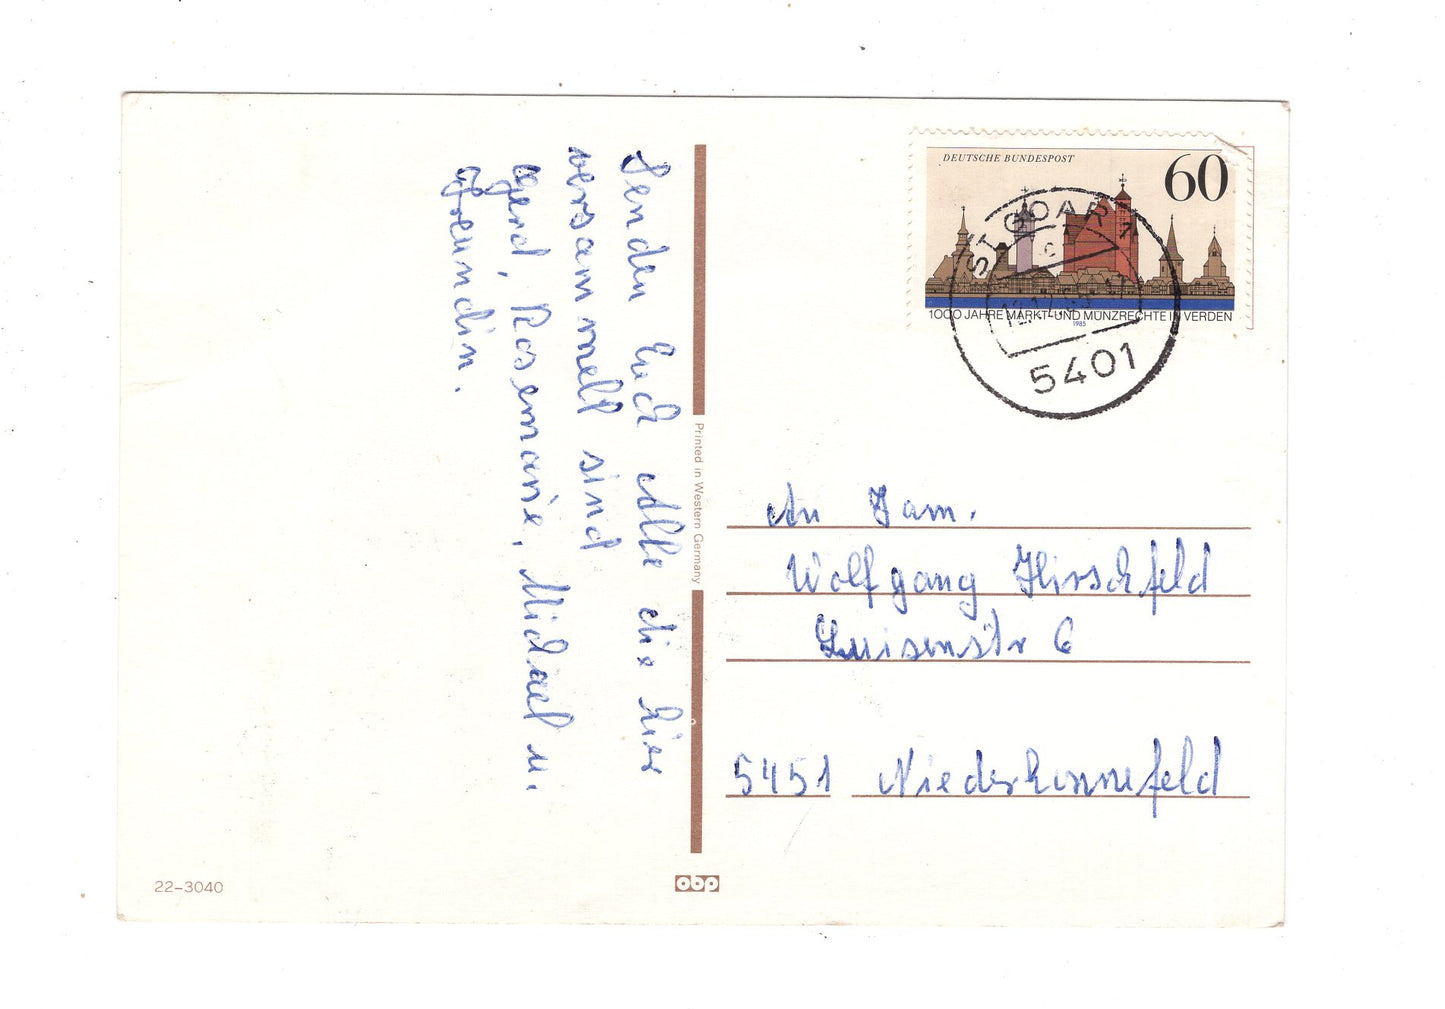 Senden Euch Alle die hier
versammelt sind
Gerd, Rosemarie, Michael u.
Freundin.
Printed in Western Germany
22-3040
obp
DEUTSCHE BUNDESPOST
60
1000 JAHRE MARKT- UND MÜNZRECHTE IN VERDEN
1985
ST GOAR 1
c
5401
An Fam.
Wolfgang Hirschfeld
Luisenstr 6
5451 Niederhonnefeld